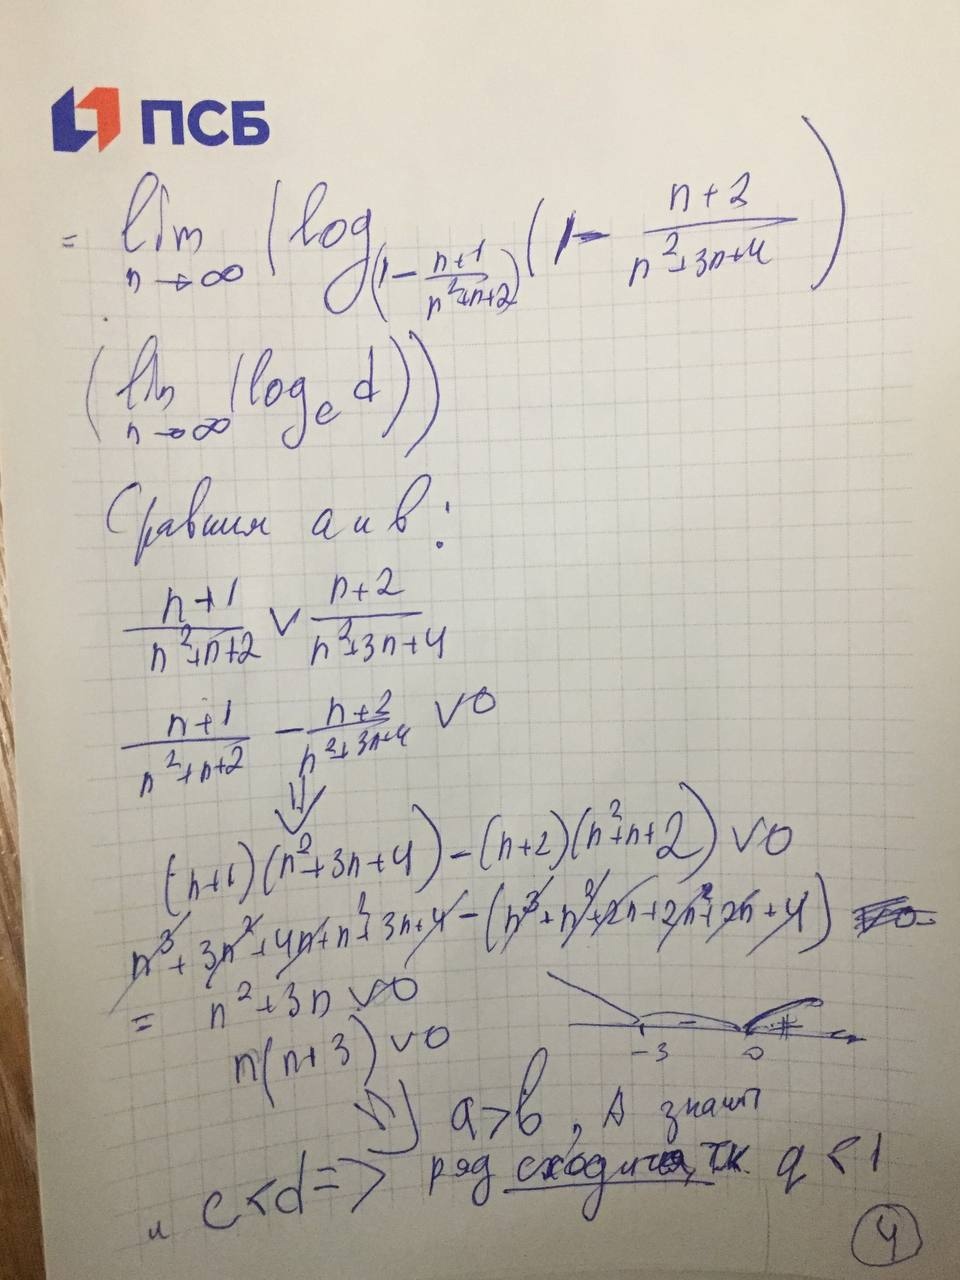 ПСБ
= lim n→∞ (log_(1 - (n+1)/(n²+n+2)) (1 - (n+2)/(n²+3n+4))
(lim n→∞ (log_c d))
Сравним a и b:
(n+1)/(n²+n+2) ∨ (n+2)/(n²+3n+4)
(n+1)/(n²+n+2) - (n+2)/(n²+3n+4) ∨ 0
⇓
(n+1)(n²+3n+4) - (n+2)(n²+n+2) ∨ 0
n³+3n²+4n+n²+3n+4 - (n³+n²+2n+2n²+2n+4)
= n²+3n ∨ 0
n(n+3) ∨ 0
-3 - 0 +
⇒ a>b, А значит
и c<d => ряд сходится, т.к. q < 1
4